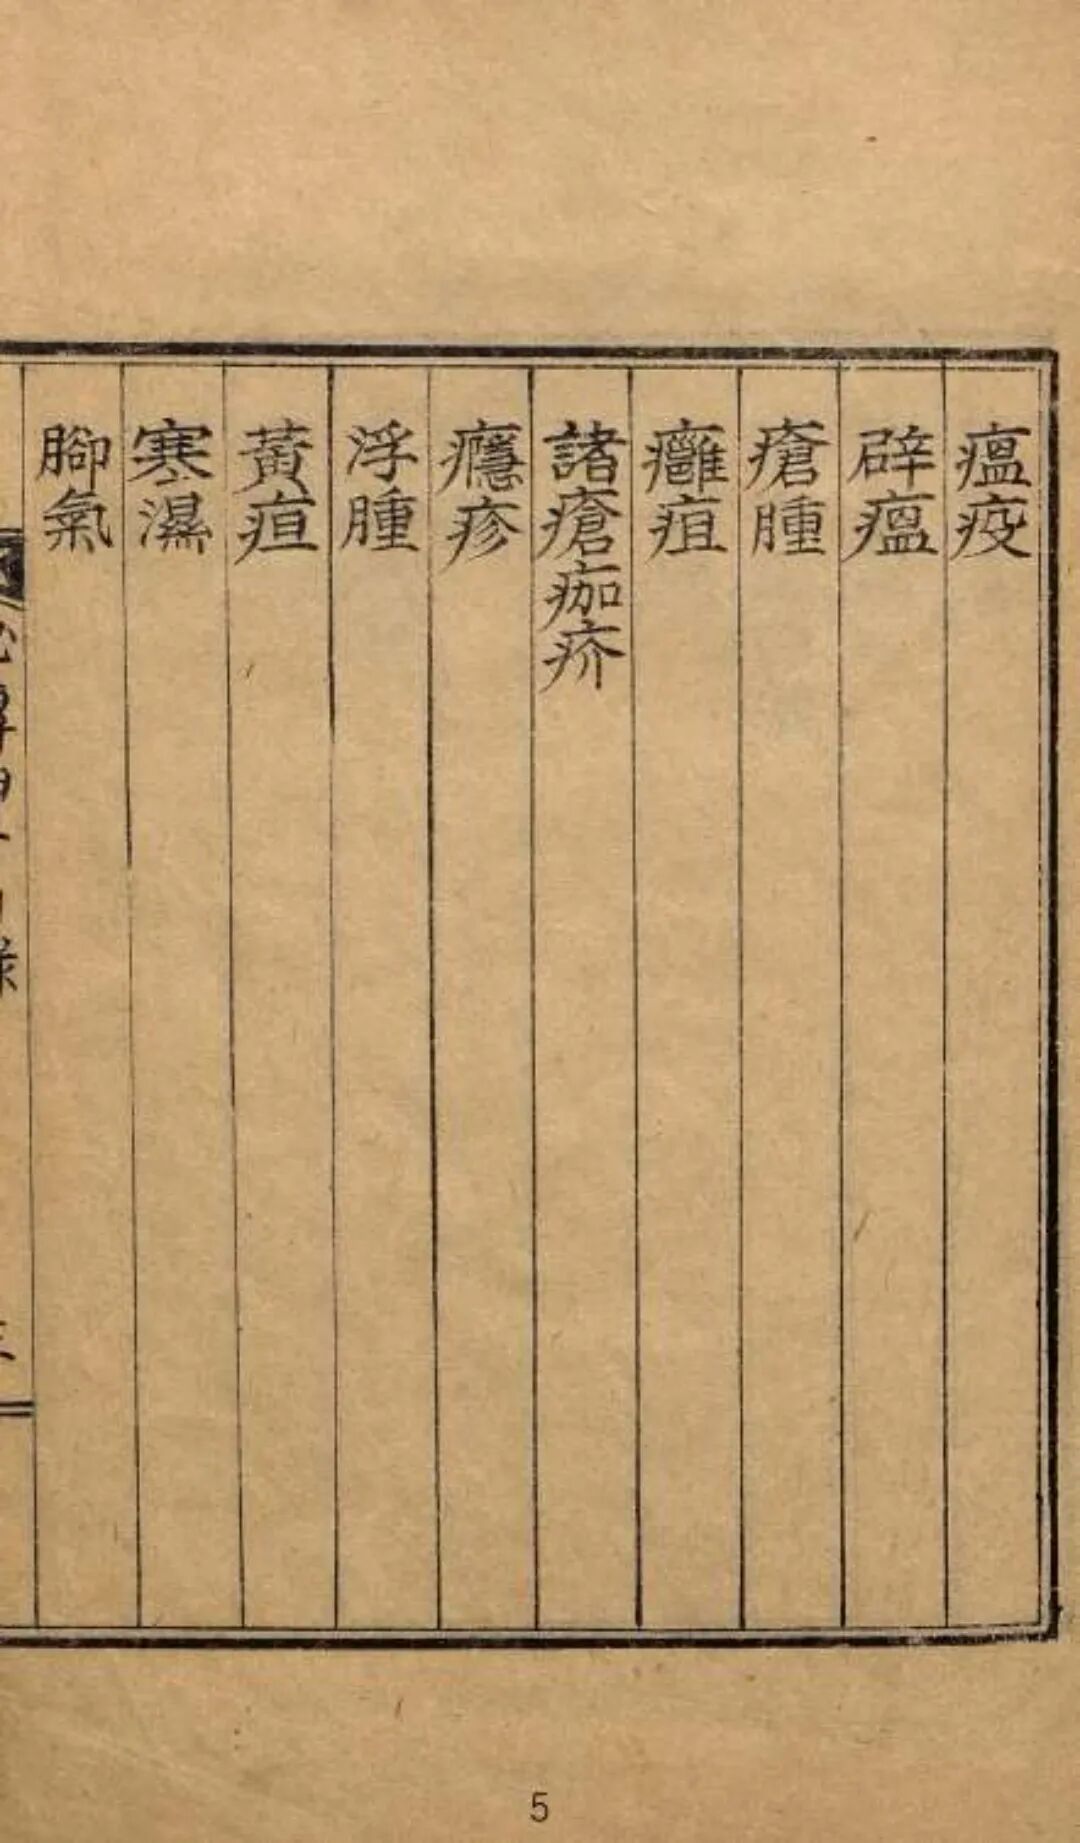 瘟疫
辟瘟
瘡腫
癰疽
諸瘡痂疥
癮疹
浮腫
黃疸
寒濕
腳氣
5